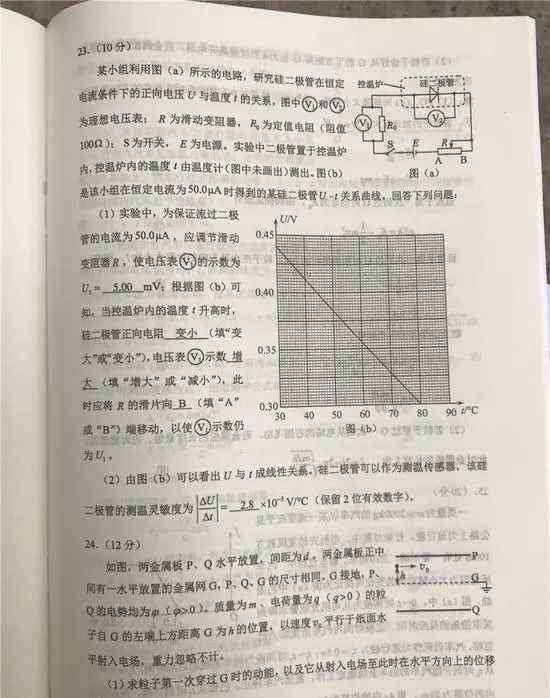 23.(10分)
某小组利用图（a）所示的电路，研究硅二极管在恒定
电流条件下的正向电压U与温度t的关系，图中V₁和V₂
为理想电压表；R为滑动变阻器，R₀为定值电阻（阻值
100Ω）；S为开关，E为电源。实验中二极管置于控温炉
内，控温炉内的温度t由温度计（图中未画出）测出。图（b）
是该小组在恒定电流为50.0μA时得到的某硅二极管U-t关系曲线。回答下列问题：
控温炉
硅二极管
V₁
R₀
V₂
S
E
R
A
B
图（a）
（1）实验中，为保证流过二极
管的电流为50.0μA，应调节滑动
变阻器R，使电压表V₁的示数为
U₁= 5.00 mV；根据图（b）可
知，当控温炉内的温度t升高时，
硅二极管正向电阻 变小 （填“变
大”或“变小”），电压表V₁示数 增
大 （填“增大”或“减小”），此
时应将R的滑片向 B （填“A”
或“B”）端移动，以使V₁示数仍
为U₁。
U/V
0.45
0.40
0.35
0.30
30 40 50 60 70 80 90 t/°C
图（b）
（2）由图（b）可以看出U与t成线性关系。硅二极管可以作为测温传感器，该硅
二极管的测温灵敏度为|ΔU/Δt|= 2.8 ×10⁻³ V/°C（保留2位有效数字）。
24.（12分）
如图，两金属板P、Q水平放置，间距为d。两金属板正中
间有一水平放置的金属网G，P、Q、G的尺寸相同。G接地，P、
Q的电势均为φ（φ>0）。质量为m、电荷量为q（q>0）的粒
子自G的左端上方距离G为h的位置，以速度v₀平行于纸面水
平射入电场，重力忽略不计。
P
v₀
h
G
Q
（1）求粒子第一次穿过G时的动能，以及它从射入电场至此时在水平方向上的位移